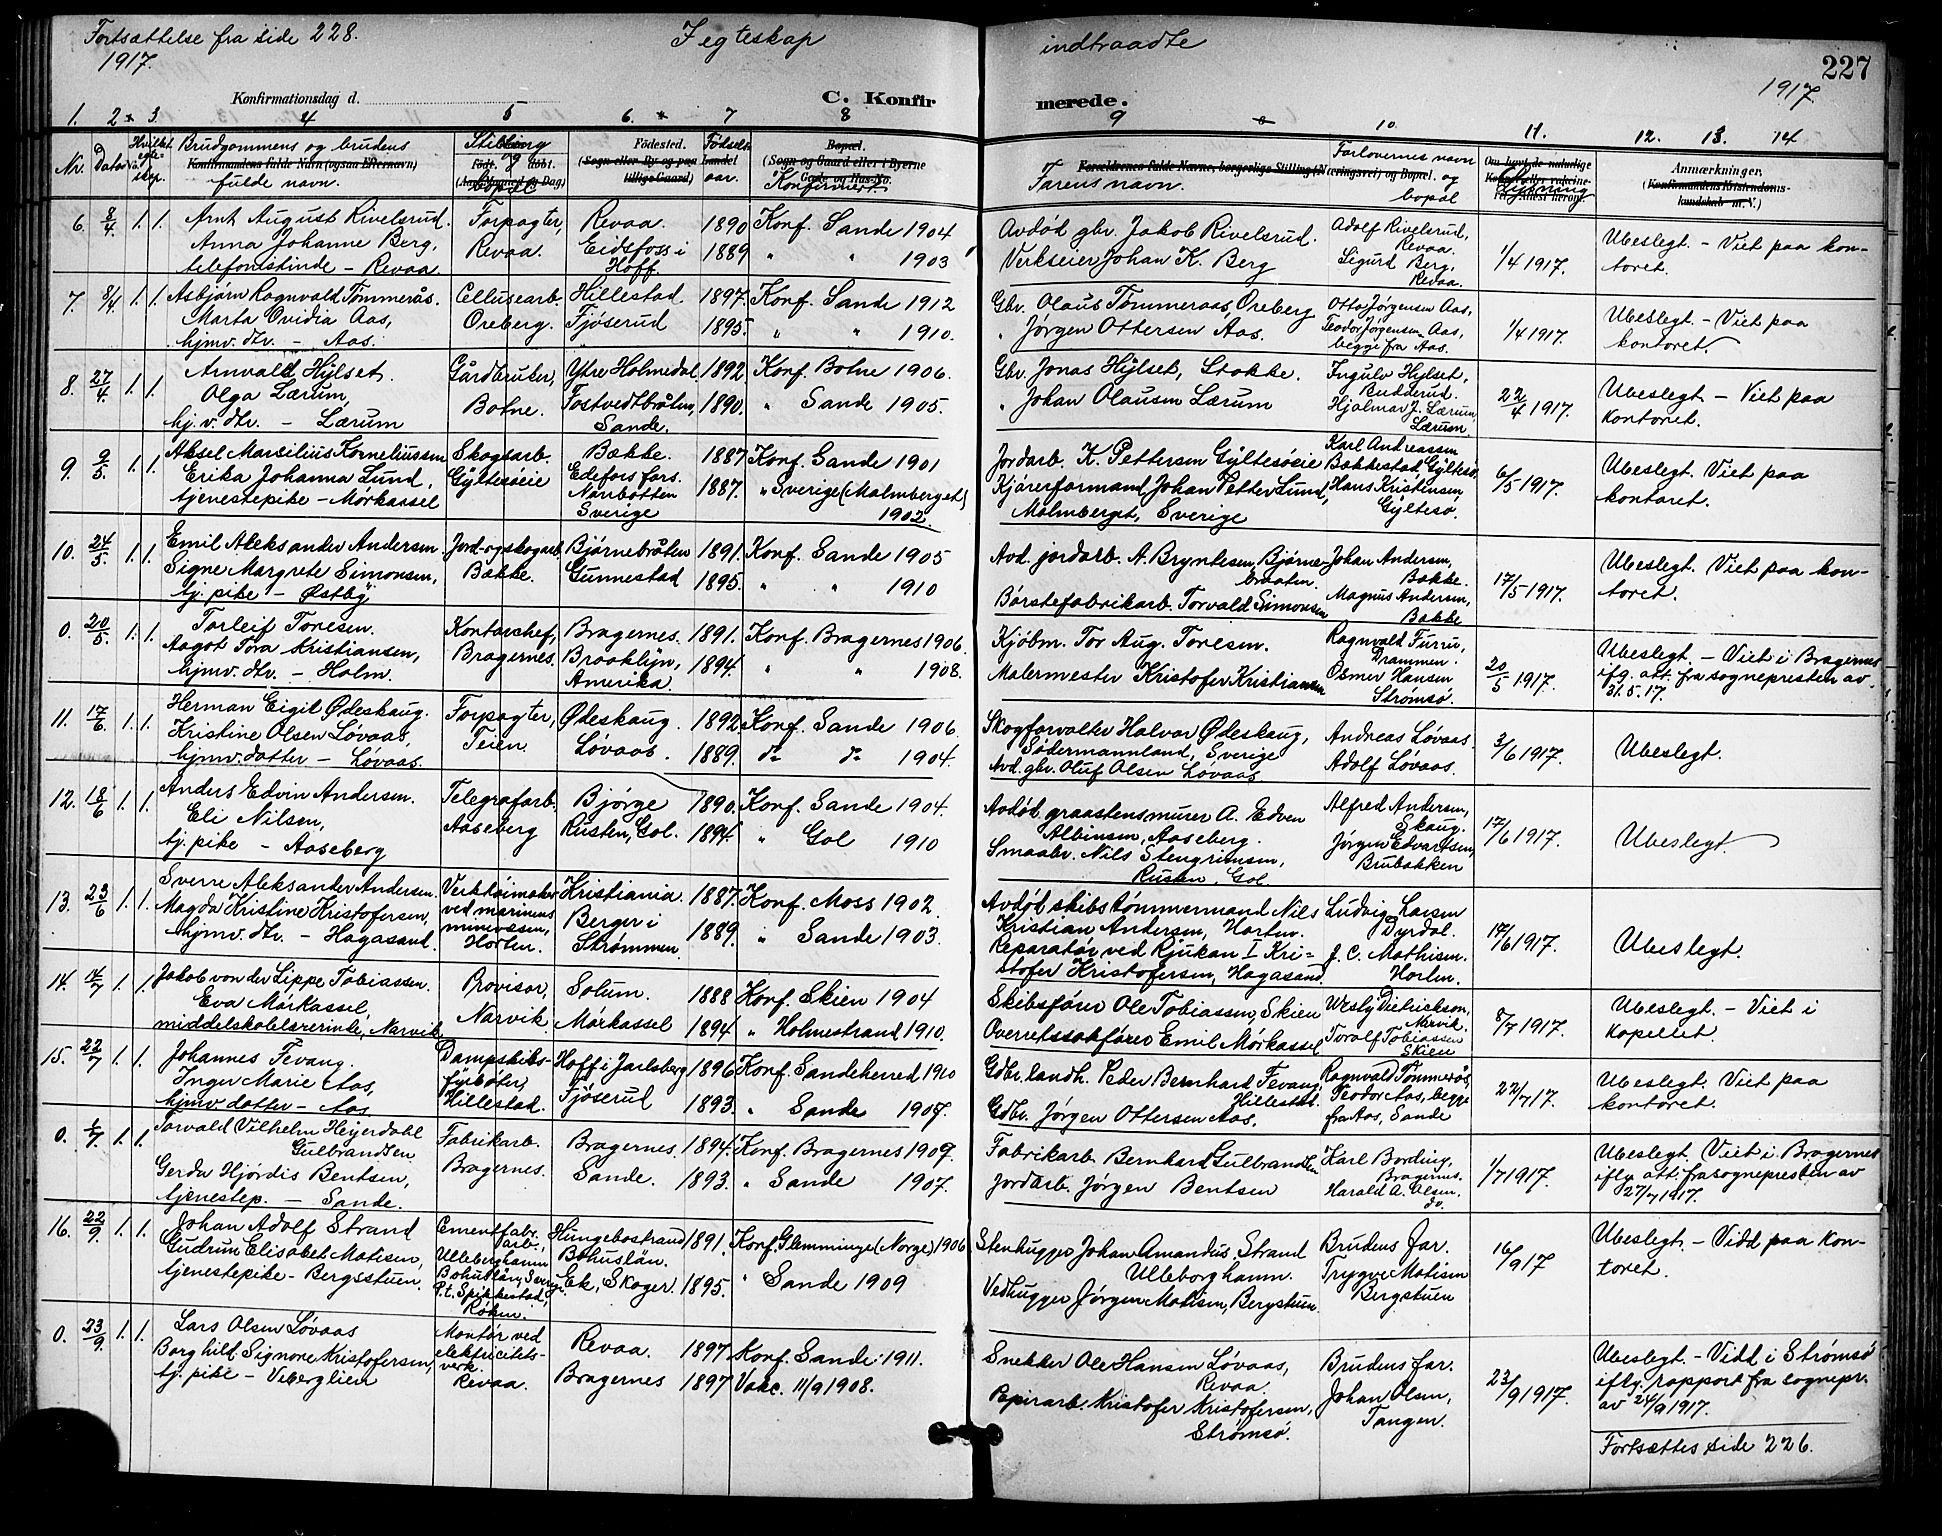 Fortsættelse fra side 228.
1917.
Egteskap
indtraadte
227
1917
Konfirmationsdag d.
C. Konfirmerede.
1. 2 3. 4 5 6. 7 8 9 10. 11. 12. 13. 14
Nr. Dato Brudgommens og brudens fulde navn. Stilling og bopæl Fødested. Fødselsaar. Konfirmert. Farens navn. Forlovernes navn og bopæl Lysning Anmærkninger.
Konfirmandens fulde Navn (ogsaa Efternavn)
(Sogn eller By og paa Landet tillige Gaard)
Bopæl.
(Sogn og Gaard eller i Byerne Gade og Hus-No.
Forældrenes fulde Navne, borgerlige Stilling (Næringsvei) og Bopæl.
(Konfirmandens Kristendomskundskab m. V.)
6. 8/4 1. 1. Arnt August Rivelsrud. Forpagter, Revaa. 1890 Konf. Sande 1904 Avdød gbr. Jakob Rivelsrud. Adolf Rivelsrud, Ubeslegt. – Viet paa kon-
Anna Johanne Berg, Revaa. Eidsfoss i 1889 " " 1903 Verkseier Johan K. Berg Revaa. Sigurd Berg, 1/4 1917. toret.
telefonistinde – Revaa. Hoff. Revaa.
7. 8/4 1. 1. Asbjørn Ragnvald Tømmerås. Cellusearb. Hillestad. 1897. Konf. Sande 1912 Gbr. Olaus Tømmeraas, Oreberg Otto Jørgensen Aas, Ubeslegt. – Viet paa
Marta Ovidia Aas, Oreberg. Tjøserud 1895. " " 1910. " Jørgen Ottersen Aas. Teodor Jørgensen Aas, 1/4 1917. kontoret.
hjmv. dtr. – Aas. begge fra Aas.
8. 27/4 1. 1. Arnvald Hylset. Gårdbruker, Ytre Holmedal. 1892 Konf. Botne 1906. Gbr. Jonas Hylset, Stokke. Ingulv Hylset, Ubeslegt – Viet paa
Olga Lærum, Botne. Fostvedtbråten, 1890. " Sande 1905. " Johan Olausen Lærum Budderud. Hjalmar J. Lærum, 22/4 1917. kontoret.
hj. v. dtr. – Lærum Sande. Lærum.
9. 9/5 1. 1. Aksel Marselius Korneliussen Skogsarb. Bække. 1887 Konf. Sande 1901 Jordarb. K. Pettersen Gyltesøeie Karl Andreassen Ubeslegt. Viet paa
Erika Johanna Lund, Gyltesøeie Edefors fors. 1887. " Sverige (Malmberget) Kjørerformand Johan Petter Lund, Bakkestad Gyltesø. Hans Kristensen 6/5 1917. kontoret.
tjenestepike – Mørkassel Norrbotten Sverige 1902. Malmberget, Sverige Gyltesø.
10. 24/5. 1. 1. Emil Aleksander Andersen Jord- og skogarb. Bjørnebråten 1891. Konf. Sande 1905 Avd. jordarb. A. Bryntesen, Bjørne- Johan Andersen, Ubeslegt. Viet paa kon-
Signe Margrete Simonsen, Bække. Gunnestad 1895. " " 1910 braaten. Bakke. Magnus Andersen, 17/5 1917. toret.
tj. pike – Østby Børstefabrikarb. Torvald Simonsen Bakke
0. 20/5. 1. 1. Torleif Toresen. Kontorchef, Bragernes. 1891. Konf. Bragernes 1906. Kjøbm. Tor Aug. Toresen. Ragnvald Furru, Ubeslegt. – Viet i Bragernes
Aagot Tora Kristiansen, Bragernes. Brooklyn, 1894. " " 1908. Malermester Kristofer Kristiansen Drammen. Osmer Hansen 20/5 1917. iflg. att. fra sognepresten av
hjmv. dtr. – Holm. Amerika. Strømsø. 31.5.17.
11. 17/6. 1. 1. Herman Eigil Ødeskaug. Forpagter, Ødeskaug. 1892 Konf. Sande 1906. Skogforvalter Halvor Ødeskaug, Andreas Løvaas.
Kristine Olsen Løvaas, Teien. Løvaas. 1889. do do 1904. Södermannland, Sverige Adolf Løvaas. 3/6 1917. Ubeslegt.
hjmv. datter – Løvaas. Avd. gbr. Oluf Olsen Løvaas
12. 18/6 1. 1. Anders Edvin Andersen. Telegrafarb. Bjørge 1890. Konf. Sande 1904. Avdød graastensmurer A. Edven Alfred Andersen,
Eli Nilsen, Aaseberg Rusten, Gol. 1894. " Gol 1910 Albinsen, Aaseberg. Skaug. 17/6 1917. Ubeslegt.
tj. pike – Aaseberg Smaabr. Nils Stengrimsen, Rusten, Gol. Jørgen Edvartsen, Brubakken
13. 23/6 1. 1. Sverre Aleksander Andersen. Verktøimaker Kristiania. 1887. Konf. Moss 1902. Avdød skibstømmermand Nils Ludvig Larsen
Magda Kristine Kristofersen, ved marinens minevæsen, Berger i 1889. " Sande 1903. Kristian Andersen, Horten. Dyrdal. 17/6 1917. Ubeslegt.
hjmv. dtr. – Hagasand. Horten. Strømmen. Reparatør ved Rjukan I Kri= J. C. Mathisen.
stofer Kristofersen, Hagasand. Horten.
14. 14/7 1. 1. Jakob von der Lippe Tobiassen. Provisor, Solum. 1888 Konf. Skien 1904 Skibsfører Ole Tobiassen, Skien Wesly Dietrickson, Ubeslegt. – Viet i
Eva Mørkassel, Narvik Mørkassel 1894. " Holmestrand 1910. Overretssakfører Emil Mørkassel Narvik. Toralf Tobiassen 8/7 1917. Kapellet.
middelskolelærerinde, Narvik Skien
15. 22/7 1. 1. Johannes Fevang. Dampskibs- Hoff i Jarlsberg 1896 Konf. Sandeherred 1910 Gdbr. landh. Peder Bernhard Fevang, Ragnvald Tømmerås, Ubeslegt. Viet paa
Inger Marie Aas, fyrbøter, Tjøserud 1893. " Sande 1907. Hillestad. Teodor Aas, begge 22/7 17. kontoret.
hjmv. datter – Aas Hillestad. Gdbr. Jørgen Ottersen Aas. fra Aas, Sande
0. 6/7 1. 1. Torvald Vilhelm Heyerdahl Fabrikarb. Bragernes. 1894. Konf. Bragernes 1909. Fabrikarb. Bernhard Gulbrandsen Karl Bording, Ubeslegt. Viet i Bragernes
Gulbrandsen Bragernes. Sande. 1893. " Sande 1907. Jordarb. Jørgen Bentsen Bragernes. 1/7 1917. iflg. att. fra sognepresten av
Gerda Hjørdis Bentsen, Harald A. Olsen, 27/7 1917.
tjenestep. – Sande. do.
16. 22/9. 1. 1. Johan Adolf Strand Cementfabr. Hungebostrand 1891. Konf. Glemminge (Norge) 1906 Stenhugger Johan Amandus Strand Brudens far. Ubeslegt. – Vidd paa kon-
Gudrun Elisabet Matisen, arb., Ulleberghamn Bohuslän. Ulleborghamn. Trygve Matisen 16/9 17 toret.
tjenestepike – Bergsstuen. Bohuslän, Sverige. Ek, Skoger. 1895. " Sande 1909 Vedhugger Jørgen Matisen, Bergstuen Bergstuen
P. t. Spikkestad, Røken.
0. 23/9. 1. 1. Lars Olsen Løvaas Montør ved Revaa. 1897. Konf. Sande 1911. Snekker Ole Hansen Løvaas, Brudens far. Ubeslegt. – Vidd i Strømsø
Borghild Signore Kristofersen, elektricitets- Bragernes 1897 Vakc. 11/9 1908. Revaa. Johan Olsen, 23/9 1917. iflg. rapport fra sognepr.
tj. pike – Veberglien verk. Revaa. Papirarb. Kristofer Kristofersen, Strømsø. Tangen. av 24/9 1917.
Fortsættes side 226.